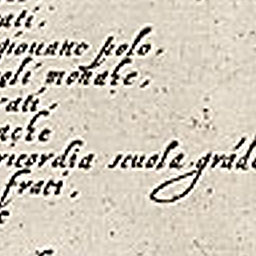 ati.
giouane polo.
eli monahe.
rati.
ache
ricordia scuola grád
frati.
e